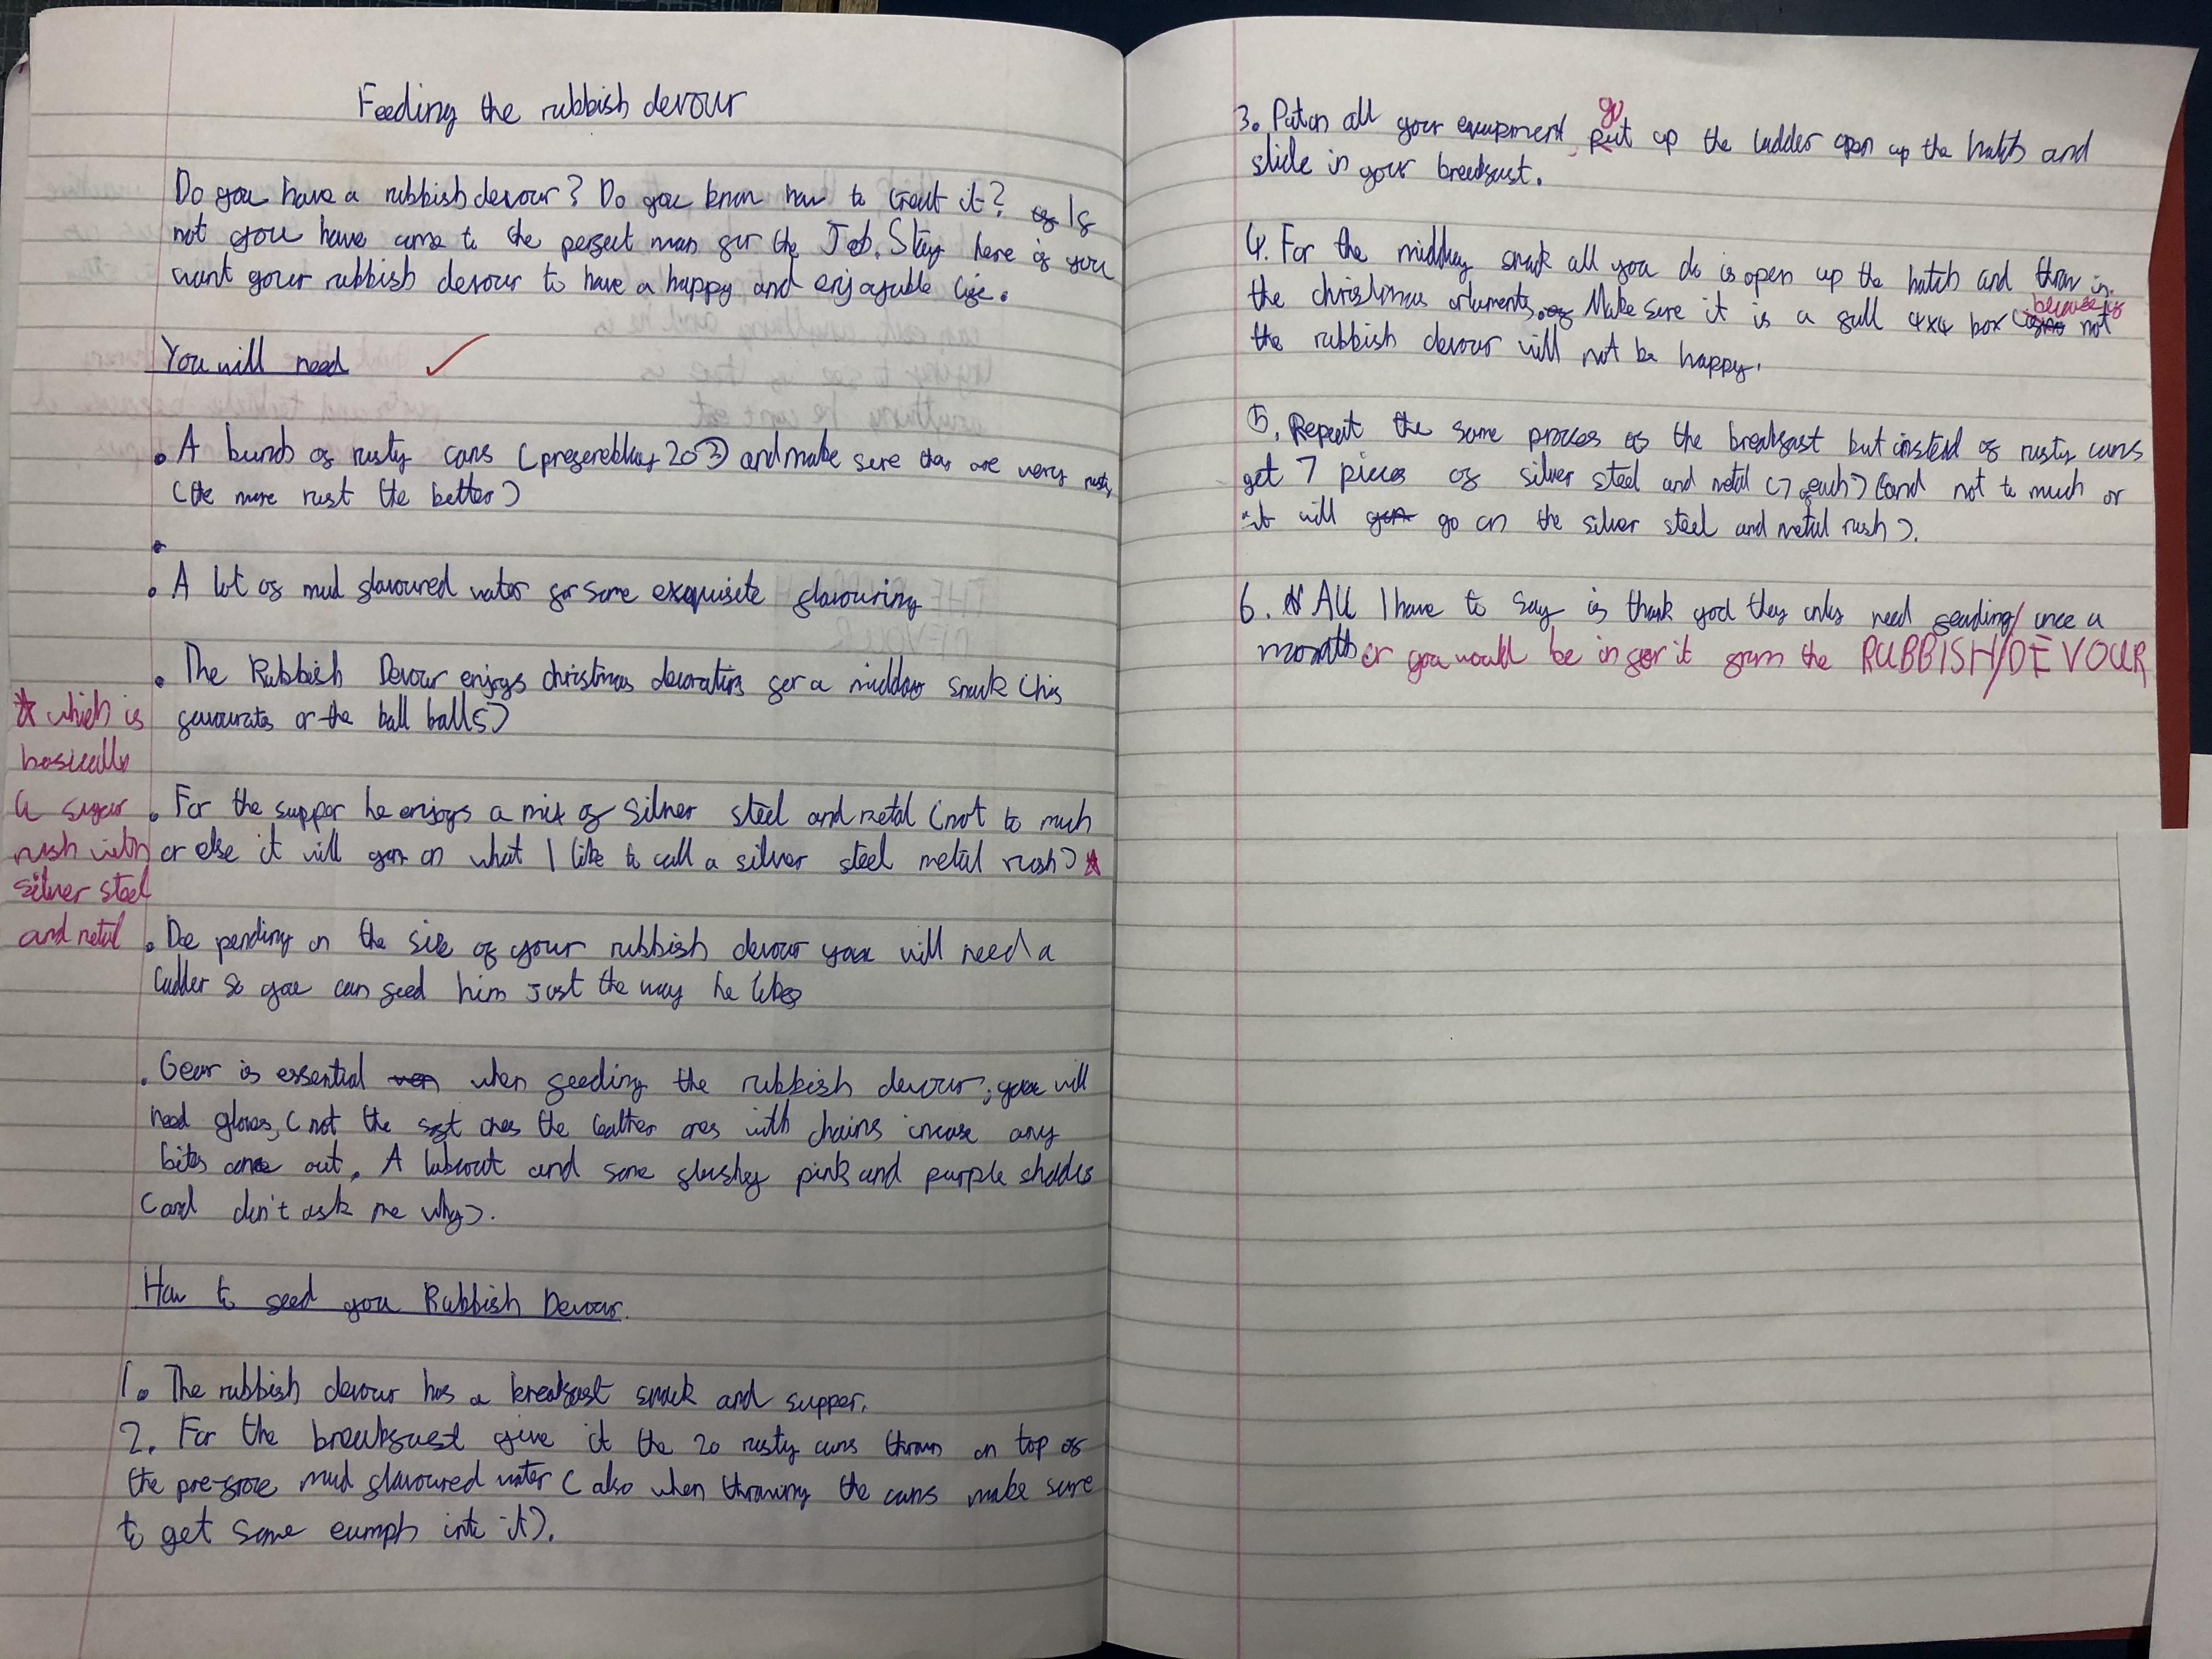 Feeding the rubbish devour
Do you have a rubbish devour? Do you know how to treat it? If
not you have come to the perfect man for the Job. Stay here if you
want your rubbish devour to have a happy and enjoyable life.
You will need
• A bunch of rusty cans (prefereblay 20 and make sure thay are very rusty
(the more rust the better)
•
• A lot of mud flavoured water for some exequisite flavouring
• The Rubbish Devour enjoys christmas decorations for a midday snack (his
favourates or the ball balls)
• For the supper he enjoys a mix of Silver steel and metal (not to much
or else it will go on what I like to call a silver steel metal rush) ☆
☆ which is
basically
a sugar
rush with
silver steel
and metal
• De pending on the size of your rubbish devour you will need a
ladder so you can feed him Just the way he likes
• Gear is essential when feeding the rubbish devour; you will
need gloves, (not the soft ones the leather ones with chains incase any
bites come out. A labcoat and some flushey pink and purple shades
(and don't ask me why).
How to feed you Rubbish Devour.
1. The rubbish devour has a breakfast snack and supper.
2. For the breakfast give it the 20 rusty cans thrown on top of
the pre-froze mud flavoured water (also when throwing the cans make sure
to get some eumph into it).
3. Put on all your equipment go up the ladder open up the hatch and
slide in your breakfast.
4. For the midday snack all you do is open up the hatch and throw in
the christmas ornuments. Make sure it is a full 4x4 box because if not
the rubbish devour will not be happy.
5. Repeat the same process of the breakfast but insted of rusty cans
get 7 pieces of silver steel and metal (7 of each) (and not to much or
it will go on the silver steel and metal rush).
6. All I have to say is thank god they only need feading/ once a
month or you would be in for it from the RUBBISH/DEVOUR